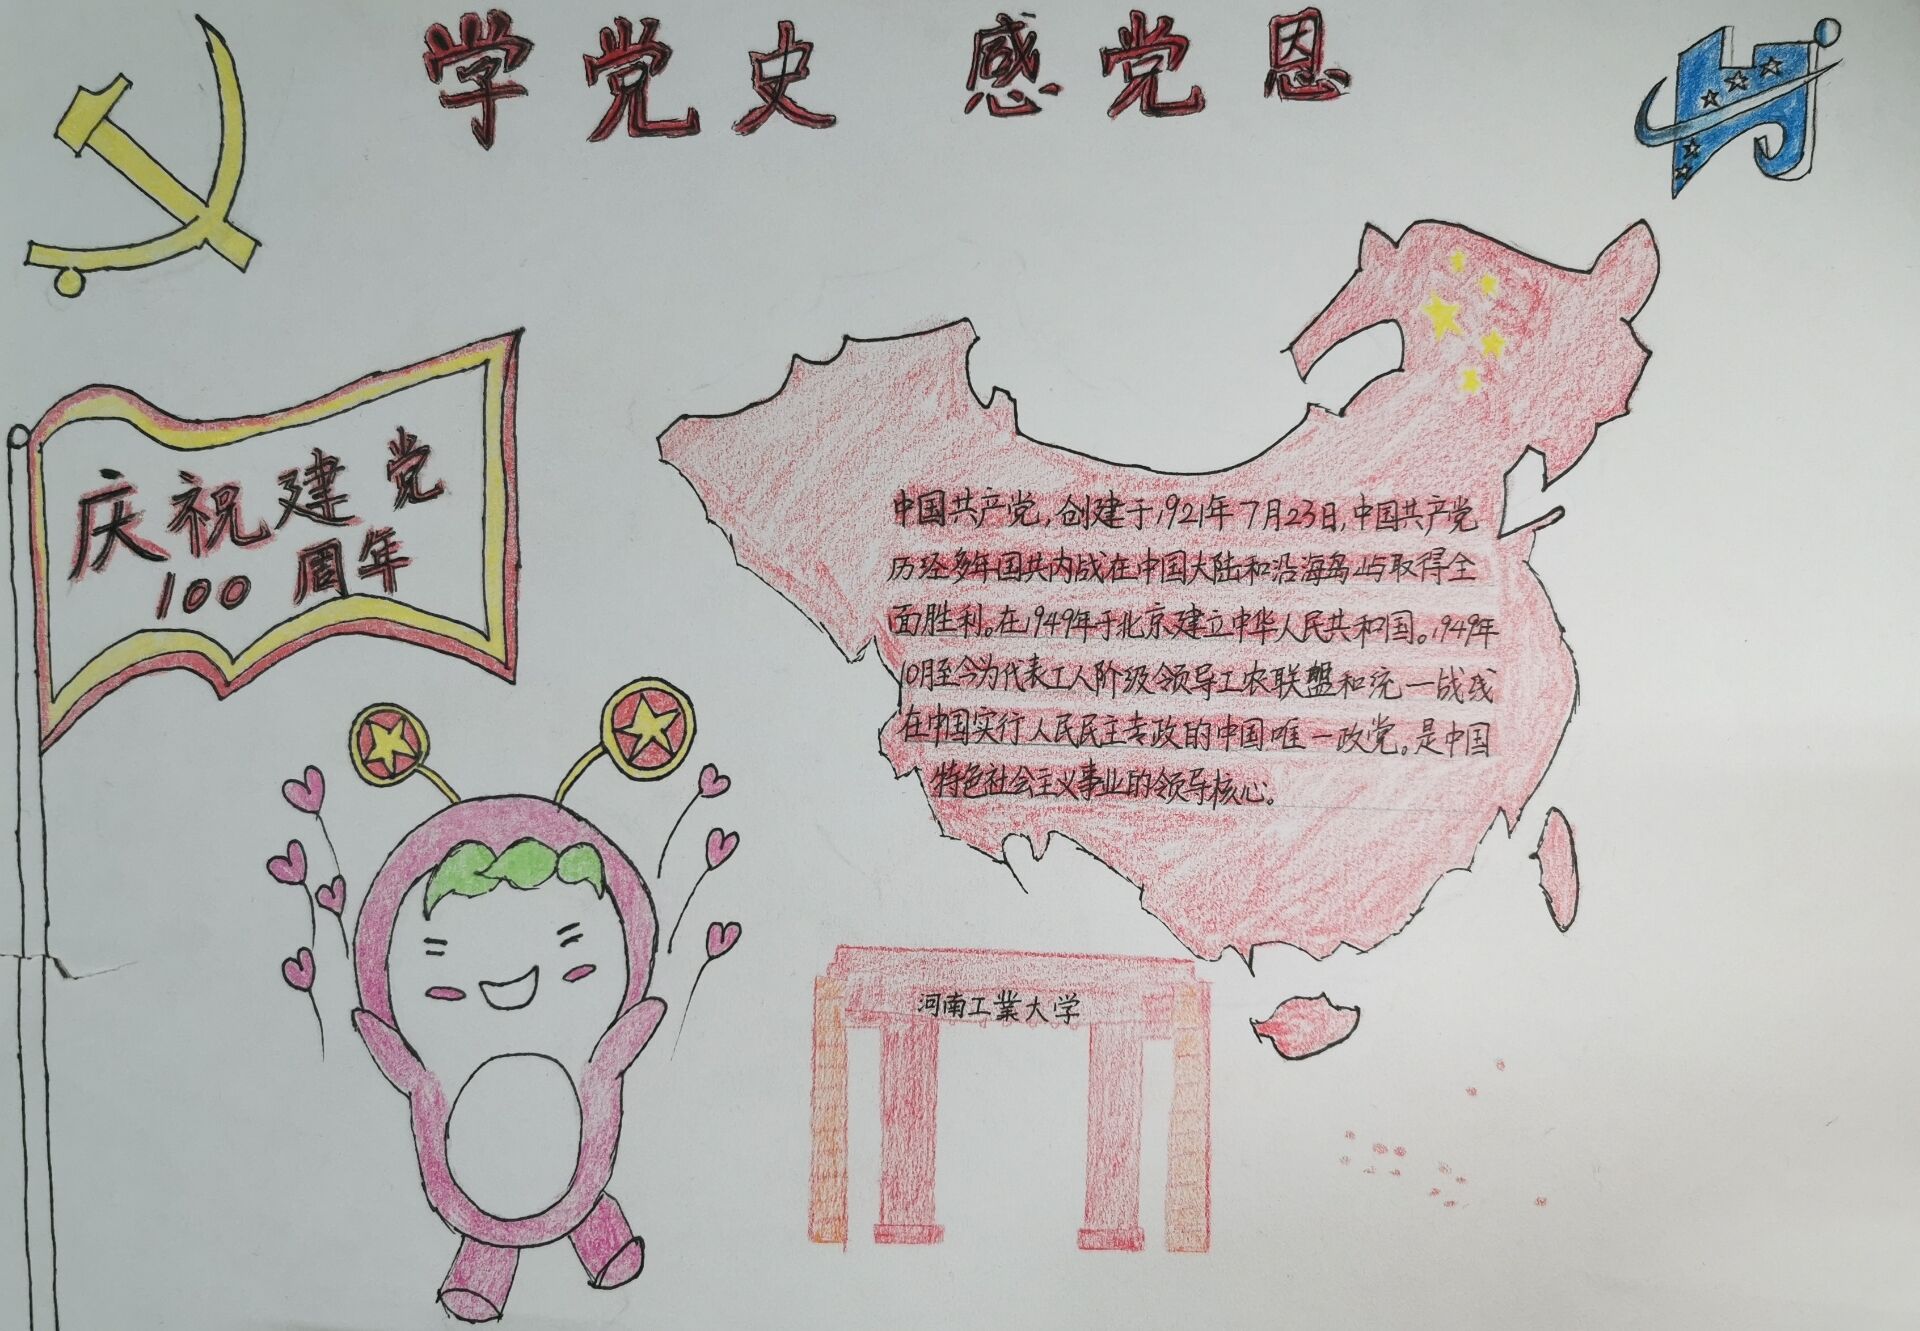 学党史 感党恩
Hj
庆祝建党
100周年
中国共产党，创建于1921年7月23日，中国共产党
历经多年国共内战在中国大陆和沿海岛屿取得全
面胜利。在1949年于北京建立中华人民共和国。1949年
10月至今为代表工人阶级领导工农联盟和统一战线
在中国实行人民民主专政的中国唯一政党。是中国
特色社会主义事业的领导核心。
河南工業大学